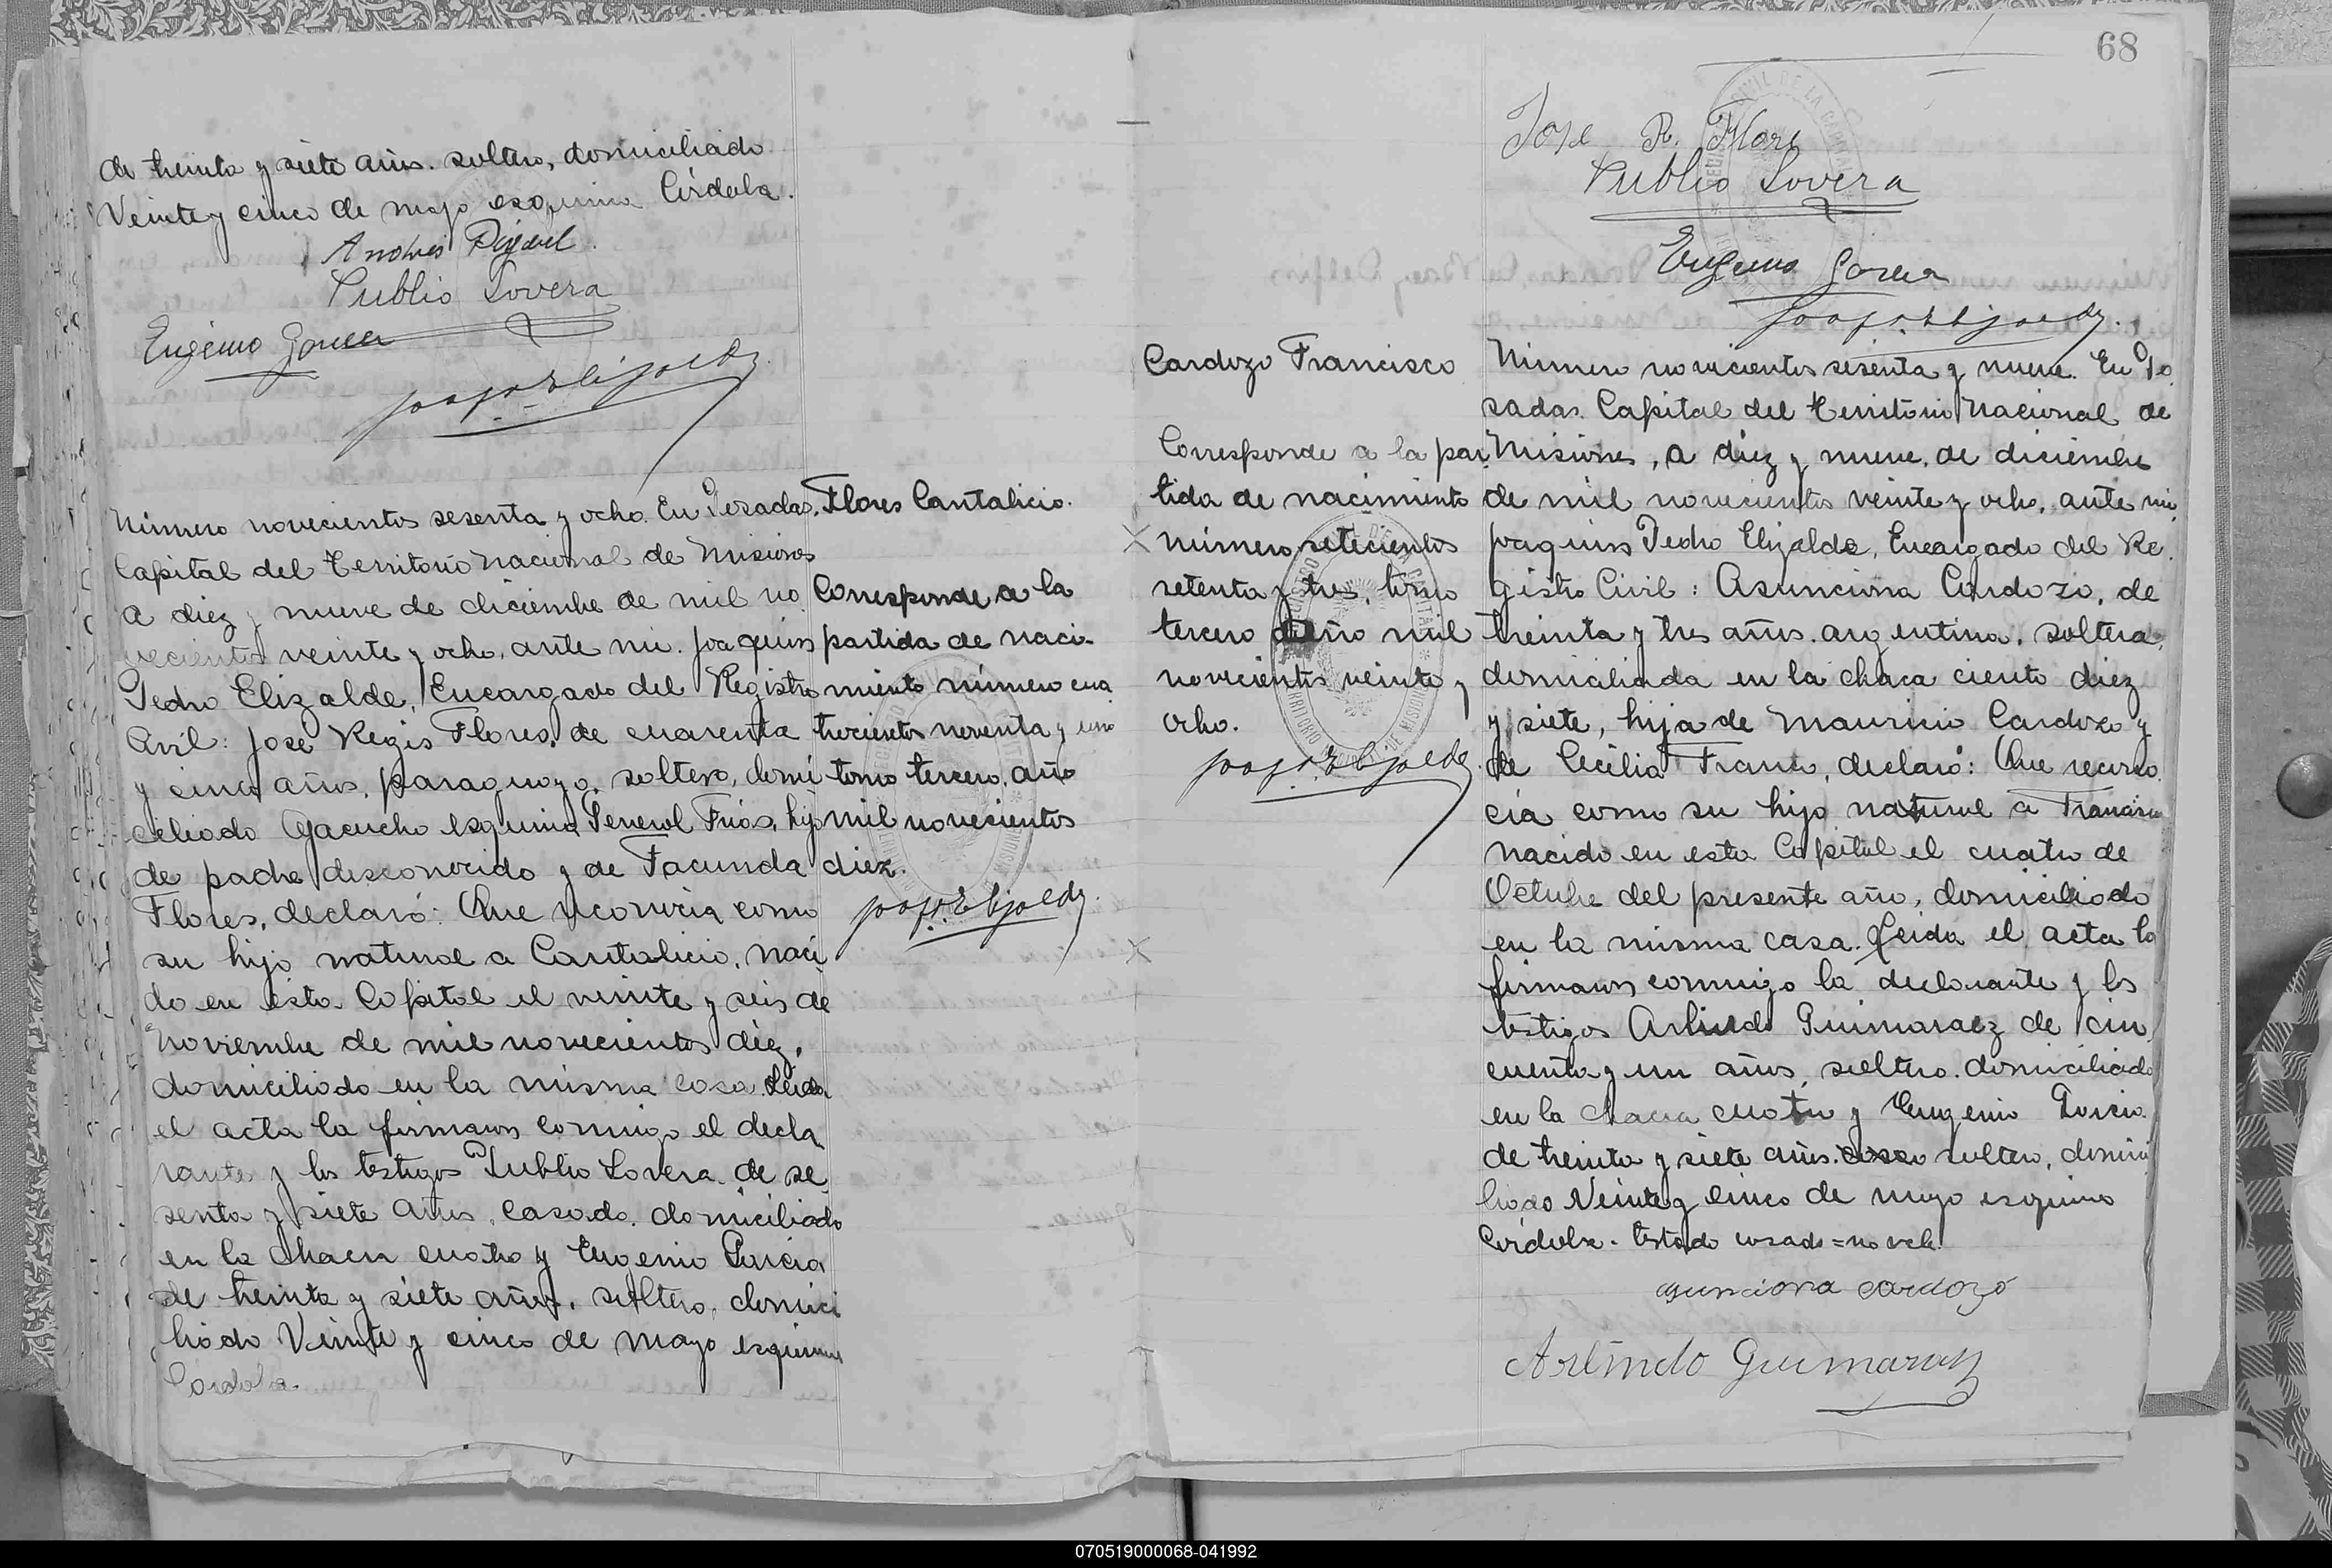 de treinta y siete años. soltero, domiciliado
Veinte y cinco de mayo esquina Córdoba.
Andrés
Publio Lovera
Eugenio Garcia
Número novecientos sesenta y ocho. En Posadas,
Capital del Territorio Nacional de Misiones
a diez y nueve de diciembre de mil no
vecientos veinte y ocho, ante mi. Joaquin
Pedro Elizalde, Encargado del Registro
Civil: José Regis Flores, de cuarenta
y cinco años, paraguayo, soltero, domi
ciliado Ayacucho esquina General Frias, hijo
de padre desconocido y de Facunda
Flores, declaró: Que reconocia como
su hijo natural a Cantalicio, naci
do en esta Capital el veinte y seis de
Noviembre de mil novecientos diez,
domiciliado en la misma casa. Leida
el acta la firmaron conmigo el decla
rante y los testigos Publio Lovera de se
senta y siete años, casado, domiciliado
en la chacra cuatro y Eugenio Garcia
de treinta y siete años, soltero, domici
liado Veinte y cinco de Mayo esquina
Cordoba.
Flores Cantalicio.
Corresponde a la
partida de naci-
miento número cua
trocientos noventa y uno
tomo tercero, año
mil novecientos
diez.
68
José R. Flores
Publio Lovera
Eugenio Garcia
Cardozo Francisco
Corresponde a la par
tida de nacimiento
número setecientos
setenta y tres, tomo
tercero año mil
novecientos veinte y
ocho.
Número novecientos sesenta y nueve. En Po
sadas. Capital del Territorio Nacional de
Misiones, a diez y nueve de diciembre
de mil novecientos veinte y ocho, ante mi,
Joaquin Pedro Elizalde, Encargado del Re
gistro Civil: Asunciona Cardozo, de
treinta y tres años. argentina. soltera,
domiciliada en la chacra ciento diez
y siete, hija de Mauricio Cardozo y
de Cecilia Franco, declaró: Que recono
cia como su hijo natural a Francisco
nacido en esta Capital el cuatro de
Octubre del presente año, domiciliado
en la misma casa. Leida el acta la
firmaron conmigo la declarante y los
testigos Arlindo Guimaraez de cin
cuenta y un años, soltero. domiciliado
en la chacra cuatro y Eugenio Garcia
de treinta y siete años. casado soltero, domici
liado Veinte y cinco de mayo esquina
Córdoba. Testado casado=no vale.
asunciona cardozo
Arlindo Guimaraez
070519000068-041992